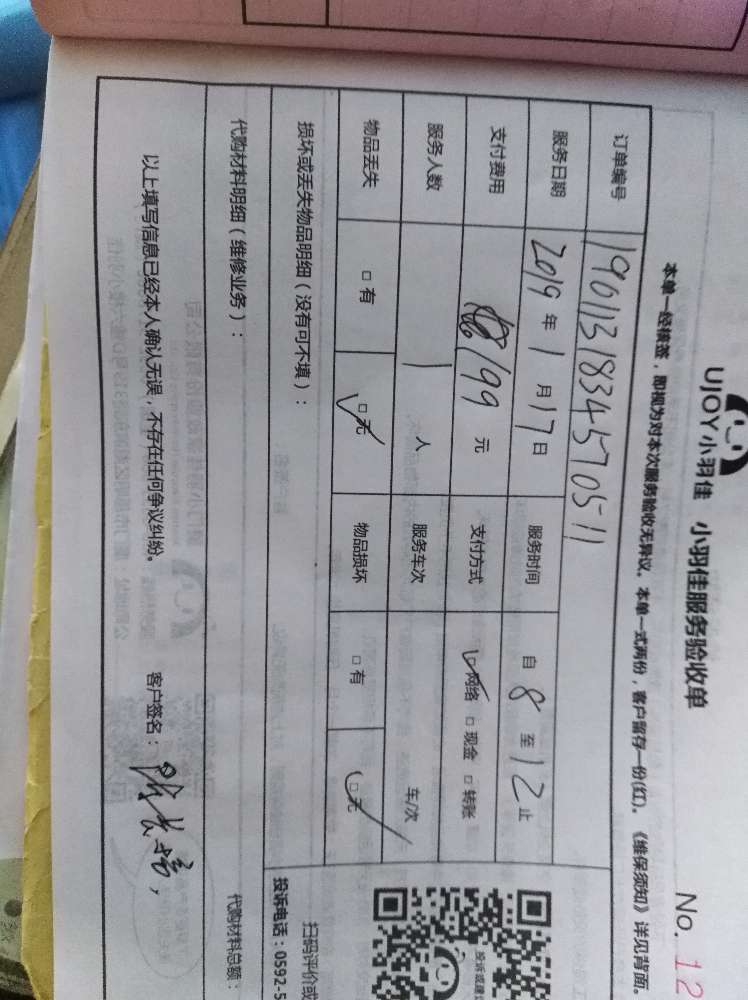 UJOY小羽佳 小羽佳服务验收单
No. 12
本单一经核签，即视为对本次服务验收无异议。本单一式两份，客户留存一份(红)。《维保须知》详见背面。
订单编号 19011318345570511
服务日期 2019年1月17日 服务时间 自8至12止
支付费用 199元 支付方式 ☑网络 □现金 □转账
服务人数 1人 服务车次 车/次
物品丢失 □有 ☑无 物品损坏 □有 ☑无
损坏或丢失物品明细（没有可不填）：
扫码评价或
投诉电话：0592-5
代购材料明细（维修业务）：
代购材料总额：
以上填写信息已经本人确认无误，不存在任何争议纠纷。 客户签名：